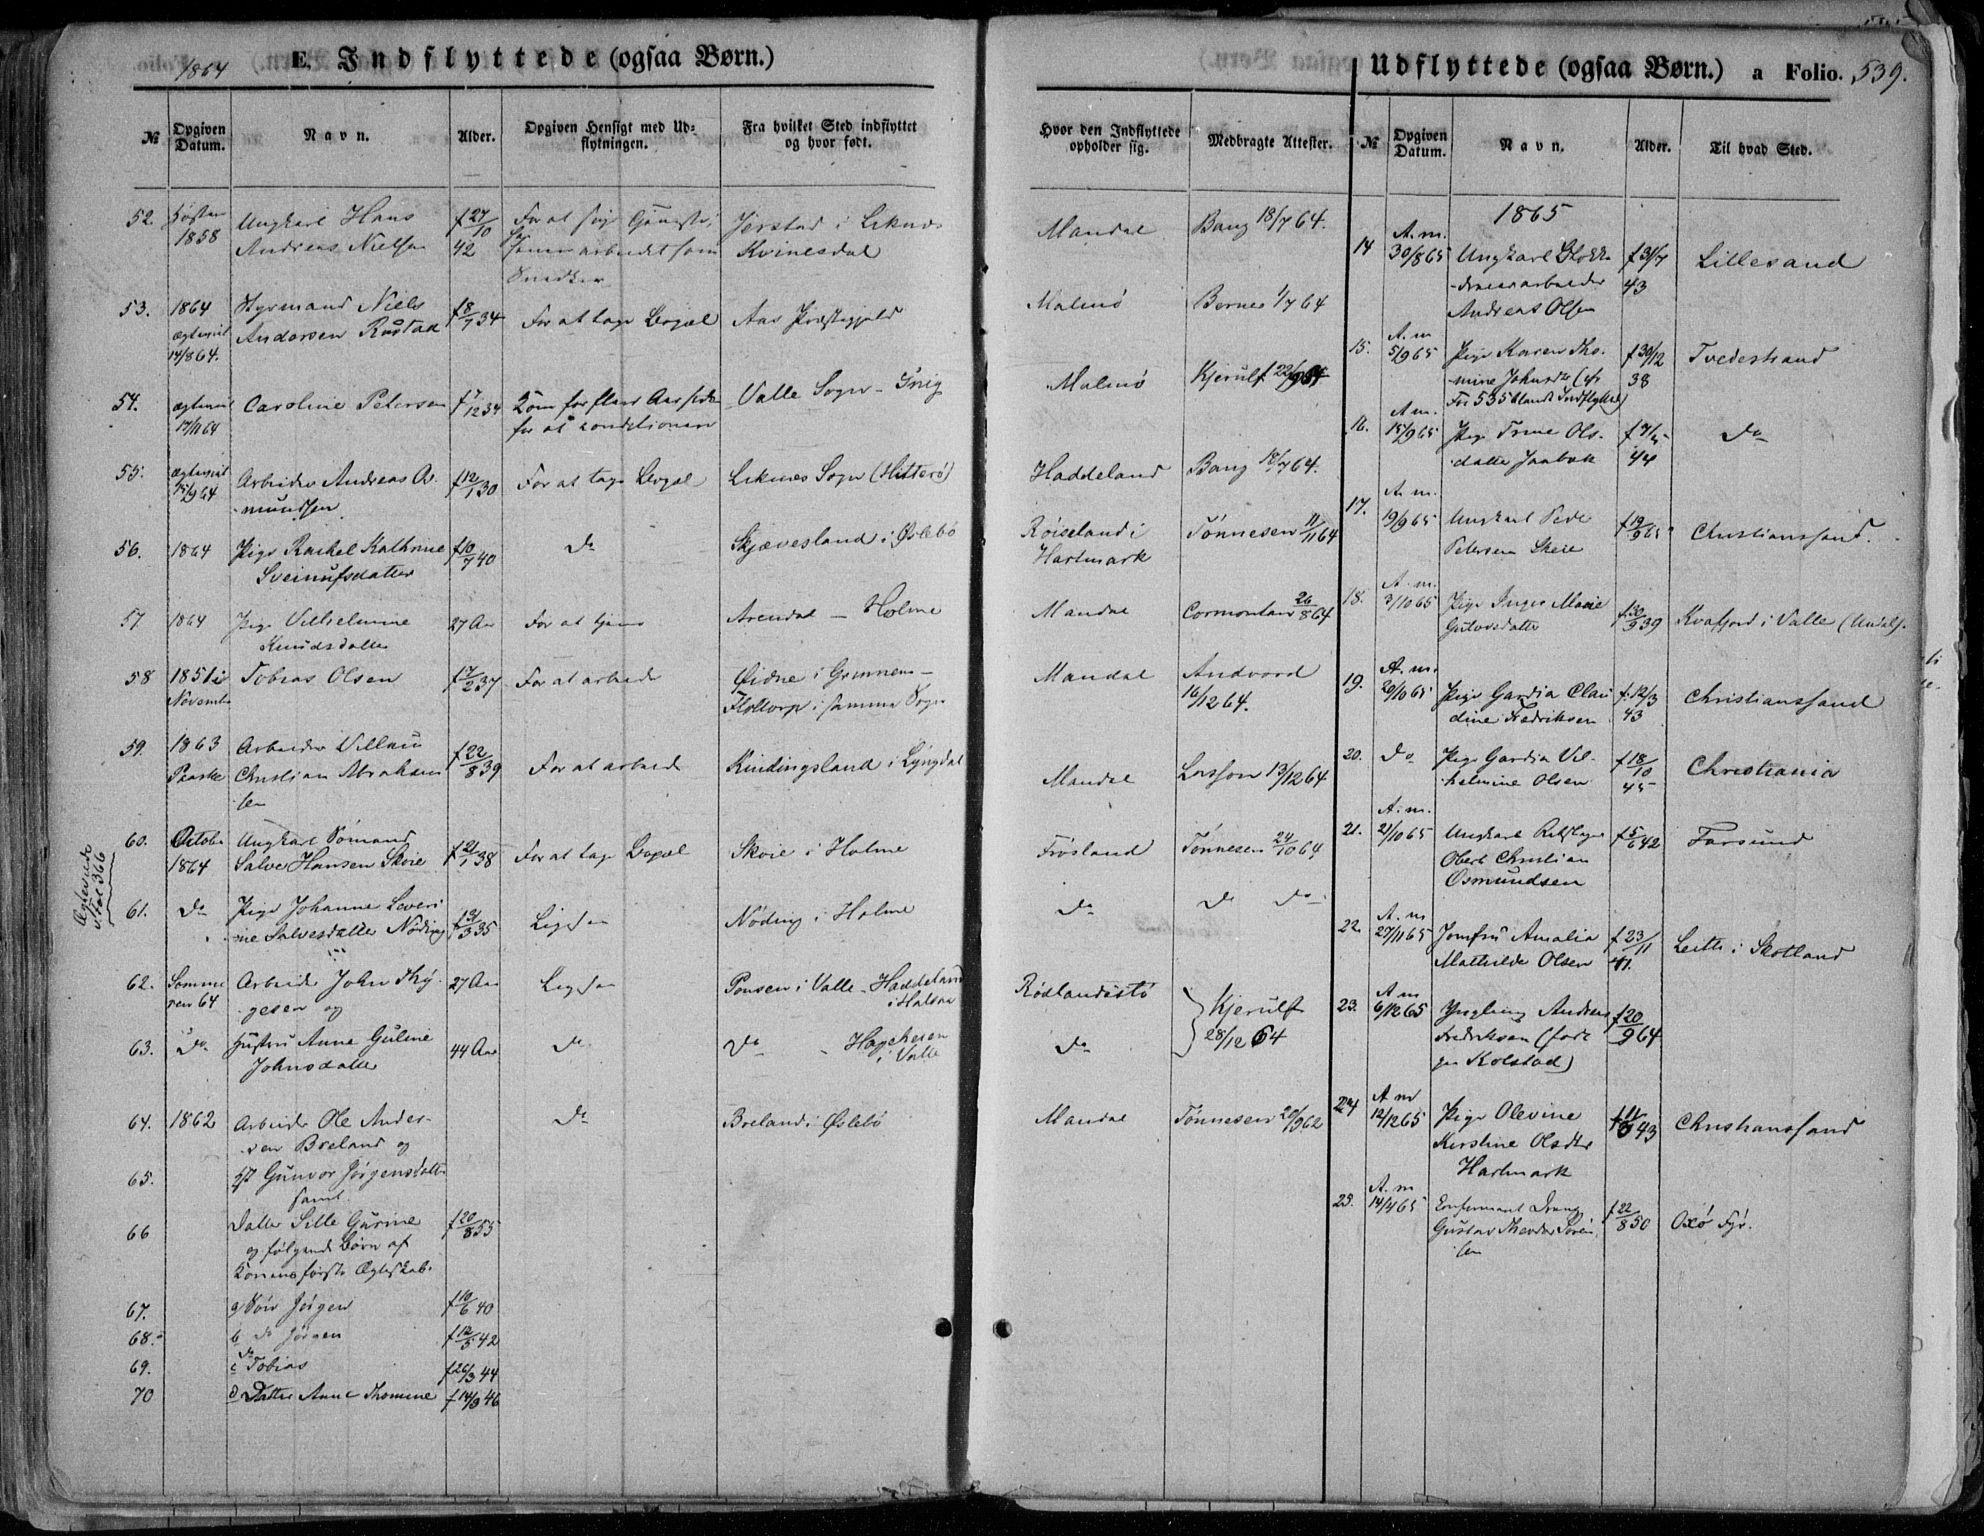 1864
E. Indflyttede (ogsaa Børn.)
Udflyttede (ogsaa Børn.) a Folio. 539.
№ Opgiven Datum. Navn. Alder. Opgiven Hensigt med Udflytningen. Fra hvilket Sted indflyttet og hvor født.
Hvor den Indflyttede opholder sig. Medbragte Attester. № Opgiven Datum. Navn. Alder. Til hvad Sted.
52. Høsten Ungkarl Hans f 27/10 For at
1858 Andreas Nielsen 42 som Kvinesdal
Snedker
Jerstad i Liknes
Mandal Bang 18/7 64.
53. 1864 Styrmand Niels f 8/1 34 For at tage Bopæl Aas Præstegjeld
Andersen Rustad
14/8 64.
Malmø 1/7 64
54. Caroline Petersen f 7/12 34 Kom for flere Aar siden Valle Sogn
17/11 64 for at conditionere
Malmø Kjerulf
55. Arbeider Andreas As- f 12/1 30 For at tage Bopæl Liknes Sogn (Hitterø)
15/9 64 mundsen
Haddeland Bang 18/7 64.
56. 1864 Pige Rachel Kathrine f 10/7 40 do Skjævesland i Øslebø
Sveinufsdatter
Røiseland i Tønnesen 11/11 64
Hartmark
57. 1864 Pige Vilhelmine 27 Aar For at tjene Arendal – Holme
Knudsdatter
Mandal Cormontan 26/8 64
58 1851 i Tobias Olsen f 17/2 37 For at arbeide Øidne i
November i samme Sogn
Mandal Andvord
16/12 64.
59. 1863 Arbeider f 22/8 39 For at arbeide Rindingsland i Lyngdal
Paaske Christian Abraham
sen
Mandal Larsson 13/12 64
60. Octobr Ungkarl Sømand f 2/1 38 For at tage Bopæl Skoie i Holme
1864 Salve Hansen Skoie
Frøsland Tønnesen 24/10 64
Ægteviede
No 366
61. do Pige Johanne Severi- f 9/3 35 Ligesaa Nøding i Holme
ne Salvesdatter Nøding
do do do
62. Somme- Arbeider John Thy- 27 Aar Ligesaa Ponsen i Valle – Haddeland
ren 64 gesen og i Halsaa
Rødlandsstø Kjerulf
28/12 64
63. do Hustru Anne Guline 44 Aar do do –
Johnsdatter i Valle
do
64. 1862 Arbeider Ole Ander- do Breland i Øslebø
sen Breland og
Mandal Tønnesen 20/9 62
65. Gunvor Jørgensdatter
samt
66 Datter Sille Gurine f 20/8 55
og følgende Børn af
Konens første Ægteskab.
67. a) Søn Jørgen f 10/6 40
68. b do Jørgen f 12/5 42
69. c do Tobias f 26/3 44
70 d Datter Anne Thomine f 14/9 46
1865
14 A. m. Ungkarl Blokke- f 31/7 Lillesand
30/8 65 dreierarbeider 43
Andreas Olsen
15. A. m Pige Karen Tho- f 30/12 Tvedestrand
5/9 65 mine Johnsdtr (cfr 38
Fol 535 blandt Indflyttede)
16. A m. Pige Trine Ols- do
15/9 65 datter Jaabæk 44
17. A. m. Ungkarl Peder f 19/9 65 Christianssand.
19/9 65 Petersen Skeie
18. A. m. Pige Inger Marie f 30/9 39 Kvafjord i Valle
3/10 65 Gulovsdatter
19. A. m. Pige Gardia Clau f 12/3 Christianssand
20/10 65 dine Fredriksen 43
20. do Pige Gardia Vil- f 18/10 Christiania
helmine Olsen 45
21. A. m. Ungkarl f 5/6 42 Farsund
21/10 65 Obert Christian
Osmundsen
22. A. m Jomfru Amalia f 23/11 Leith i Skotland
27/11 65 Mathilde Olsen 41.
23. A m Yngling Andreas f 20/9 64
6/12 65 Fredriksen (født
paa Kolstad)
24 A m Pige Olevine Christianssand
12/12 65 Kirstine Olsdtr 43
Hartmark
25. A. m Confirmant Dreng f 22/8 50 Oxø Fyr.
14/4 65 Gustav Theodor Søren
sen